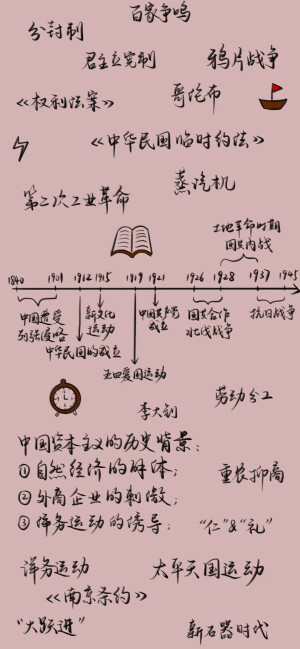 百家争鸣
分封制
君主立宪制
鸦片战争
《权利法案》
哥伦布
《中华民国临时约法》
蒸汽机
第二次工业革命
土地革命时期
国共内战
1840
1901
1912
1915
1919
1921
1926
1928
1937
1945
中国遭受
列强侵略
中华民国的成立
新文化
运动
五四爱国运动
中国共产党
成立
国共合作
北伐战争
抗日战争
劳动分工
李大钊
中国资本主义的历史背景：
①自然经济的解体；
②外商企业的刺激；
③洋务运动的诱导；
重农抑商
“仁”&“礼”
洋务运动
太平天国运动
《南京条约》
“大跃进”
新石器时代